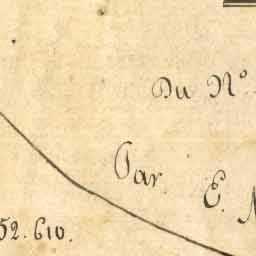 Du N°
Par. E.
52.610.